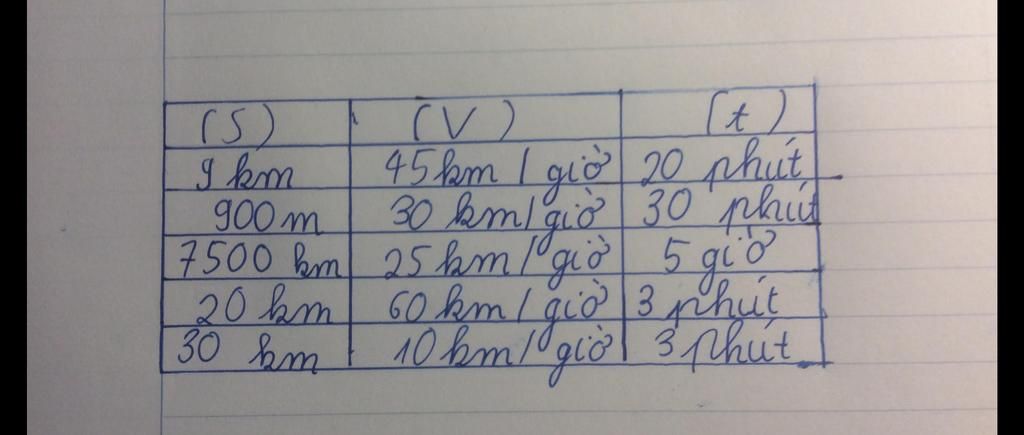 (S) (V) (t)
9 km 45 km / giờ 20 phút
900 m 30 km / giờ 30 phút
7500 km 25 km / giờ 5 giờ
20 km 60 km / giờ 3 phút
30 km 10 km / giờ 3 phút